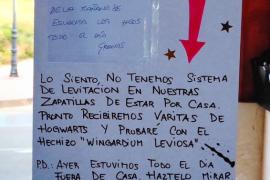 DE LA MAÑANA DE
ESCUCHAR LOS PASOS
TODO EL DÍA
GRACIAS
LO SIENTO, NO TENEMOS SISTEMA
DE LEVITACIÓN EN NUESTRAS
ZAPATILLAS DE ESTAR POR CASA.
PRONTO RECIBIREMOS VARITAS DE
HOGWARTS Y PROBARÉ CON EL
HECHIZO "WINGARDIUM LEVIOSA"
P.D.: AYER ESTUVIMOS TODO EL DÍA
FUERA DE CASA. HAZTELO MIRAR